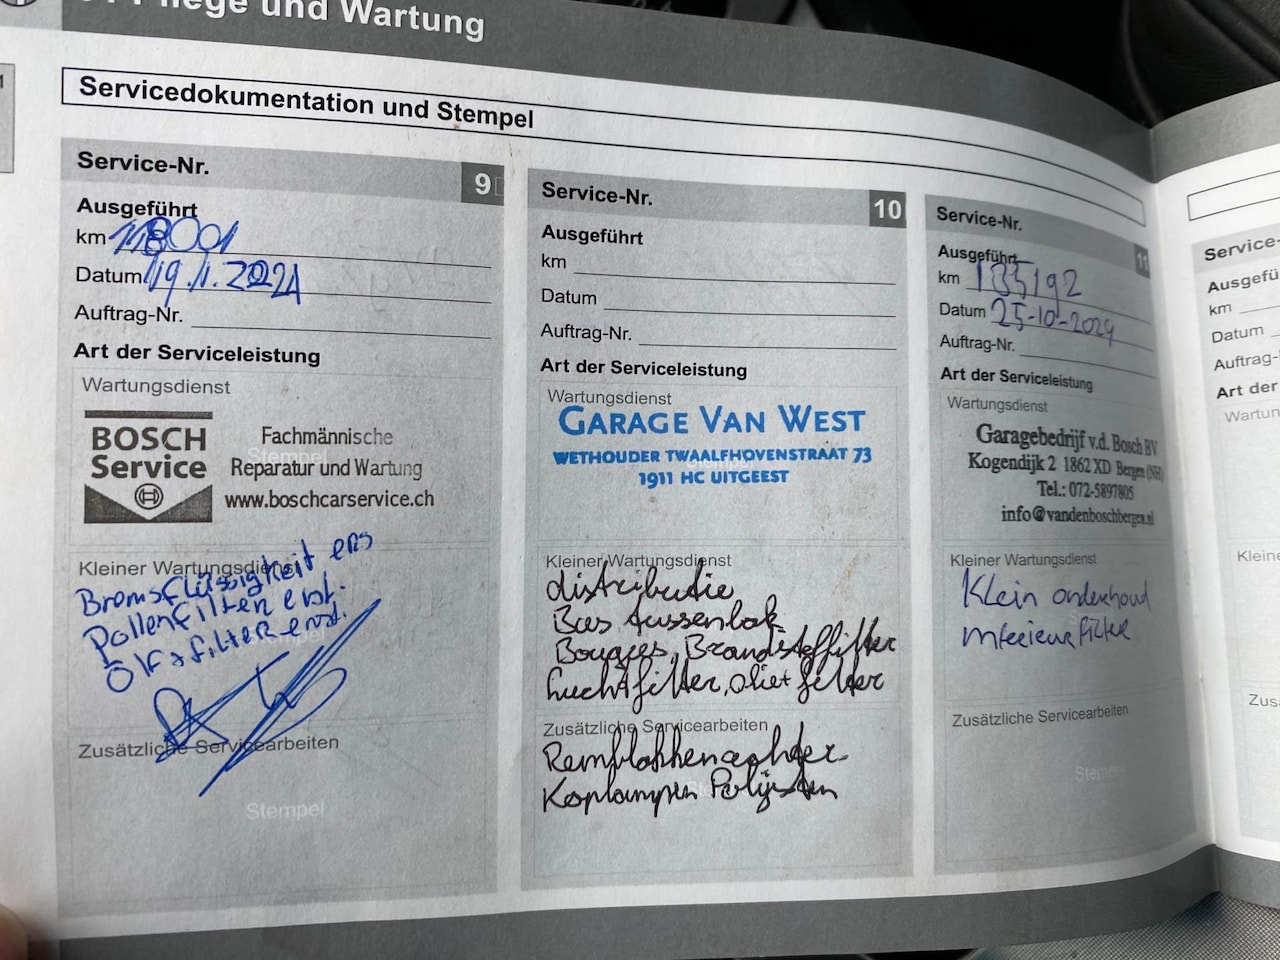 Pflege und Wartung
Servicedokumentation und Stempel
Service-Nr. 9
Ausgeführt
km 118001
Datum 19.1.2021
Auftrag-Nr.
Art der Serviceleistung
Wartungsdienst
BOSCH
Service
Fachmännische
Reparatur und Wartung
www.boschcarservice.ch
Stempel
Kleiner Wartungsdienst
Bremsflüssigkeit ers
Pollenfilter erst.
Öl + filter erst.
Zusätzliche Servicearbeiten
Stempel
Service-Nr. 10
Ausgeführt
km
Datum
Auftrag-Nr.
Art der Serviceleistung
Wartungsdienst
GARAGE VAN WEST
WETHOUDER TWAALFHOVENSTRAAT 73
Stempel
1911 HC UITGEEST
Kleiner Wartungsdienst
distributie
Bougies, Brandstoffilter
Luchtfilter, oliefilter
Zusätzliche Servicearbeiten
Remblokken achter
Koplampen Polijsten
Service-Nr. 11
Ausgeführt
km 135192
Datum 25-10-2024
Auftrag-Nr.
Art der Serviceleistung
Wartungsdienst
Garagebedrijf v.d. Bosch BV
Kogendijk 2 1862 XD Bergen (NH)
Tel.: 072-5897805
info@vandenboschbergen.nl
Kleiner Wartungsdienst
Klein onderhoud
Interieurfilter
Zusätzliche Servicearbeiten
Stempel
Service-
Ausgefü
km
Datum
Auftrag-
Art der
Wartun
Kleine
Zus